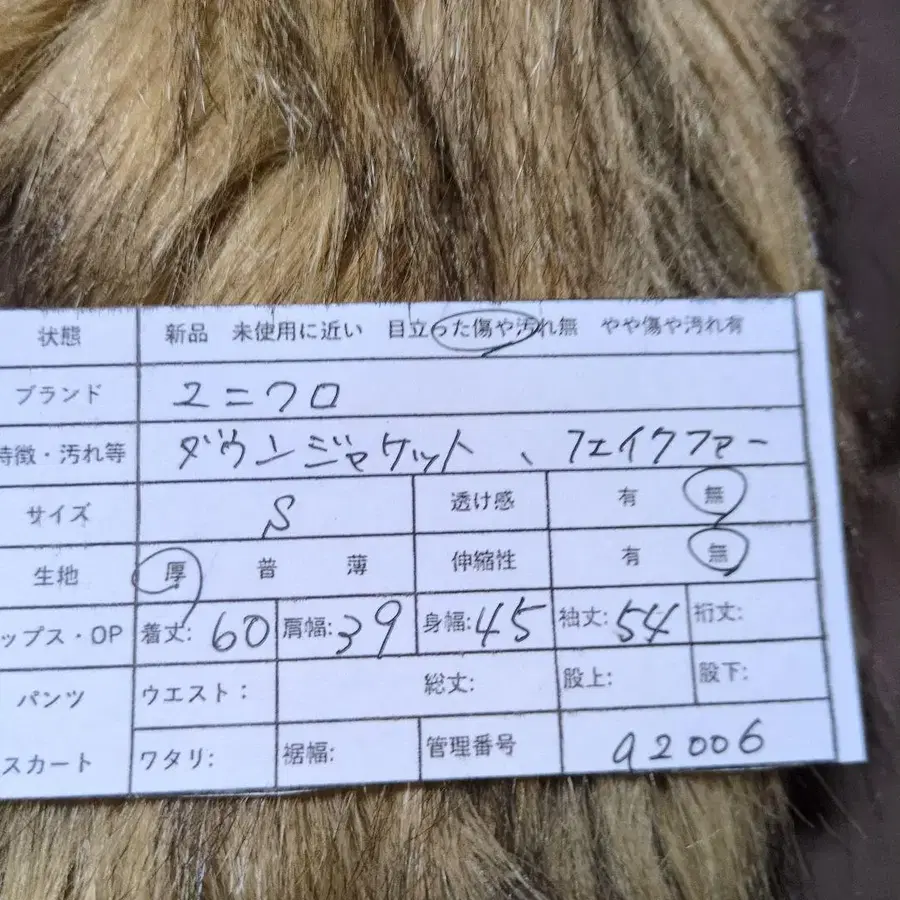 状態 新品 未使用に近い 目立った傷や汚れ無 やや傷や汚れ有
ブランド ユニクロ
特徴・汚れ等 ダウンジャケット、フェイクファー
サイズ S 透け感 有 無
生地 厚 普 薄 伸縮性 有 無
ップス・OP 着丈: 60 肩幅: 39 身幅: 45 袖丈: 54 裄丈:
パンツ ウエスト: 総丈: 股上: 股下:
スカート ワタリ: 裾幅: 管理番号 a2006